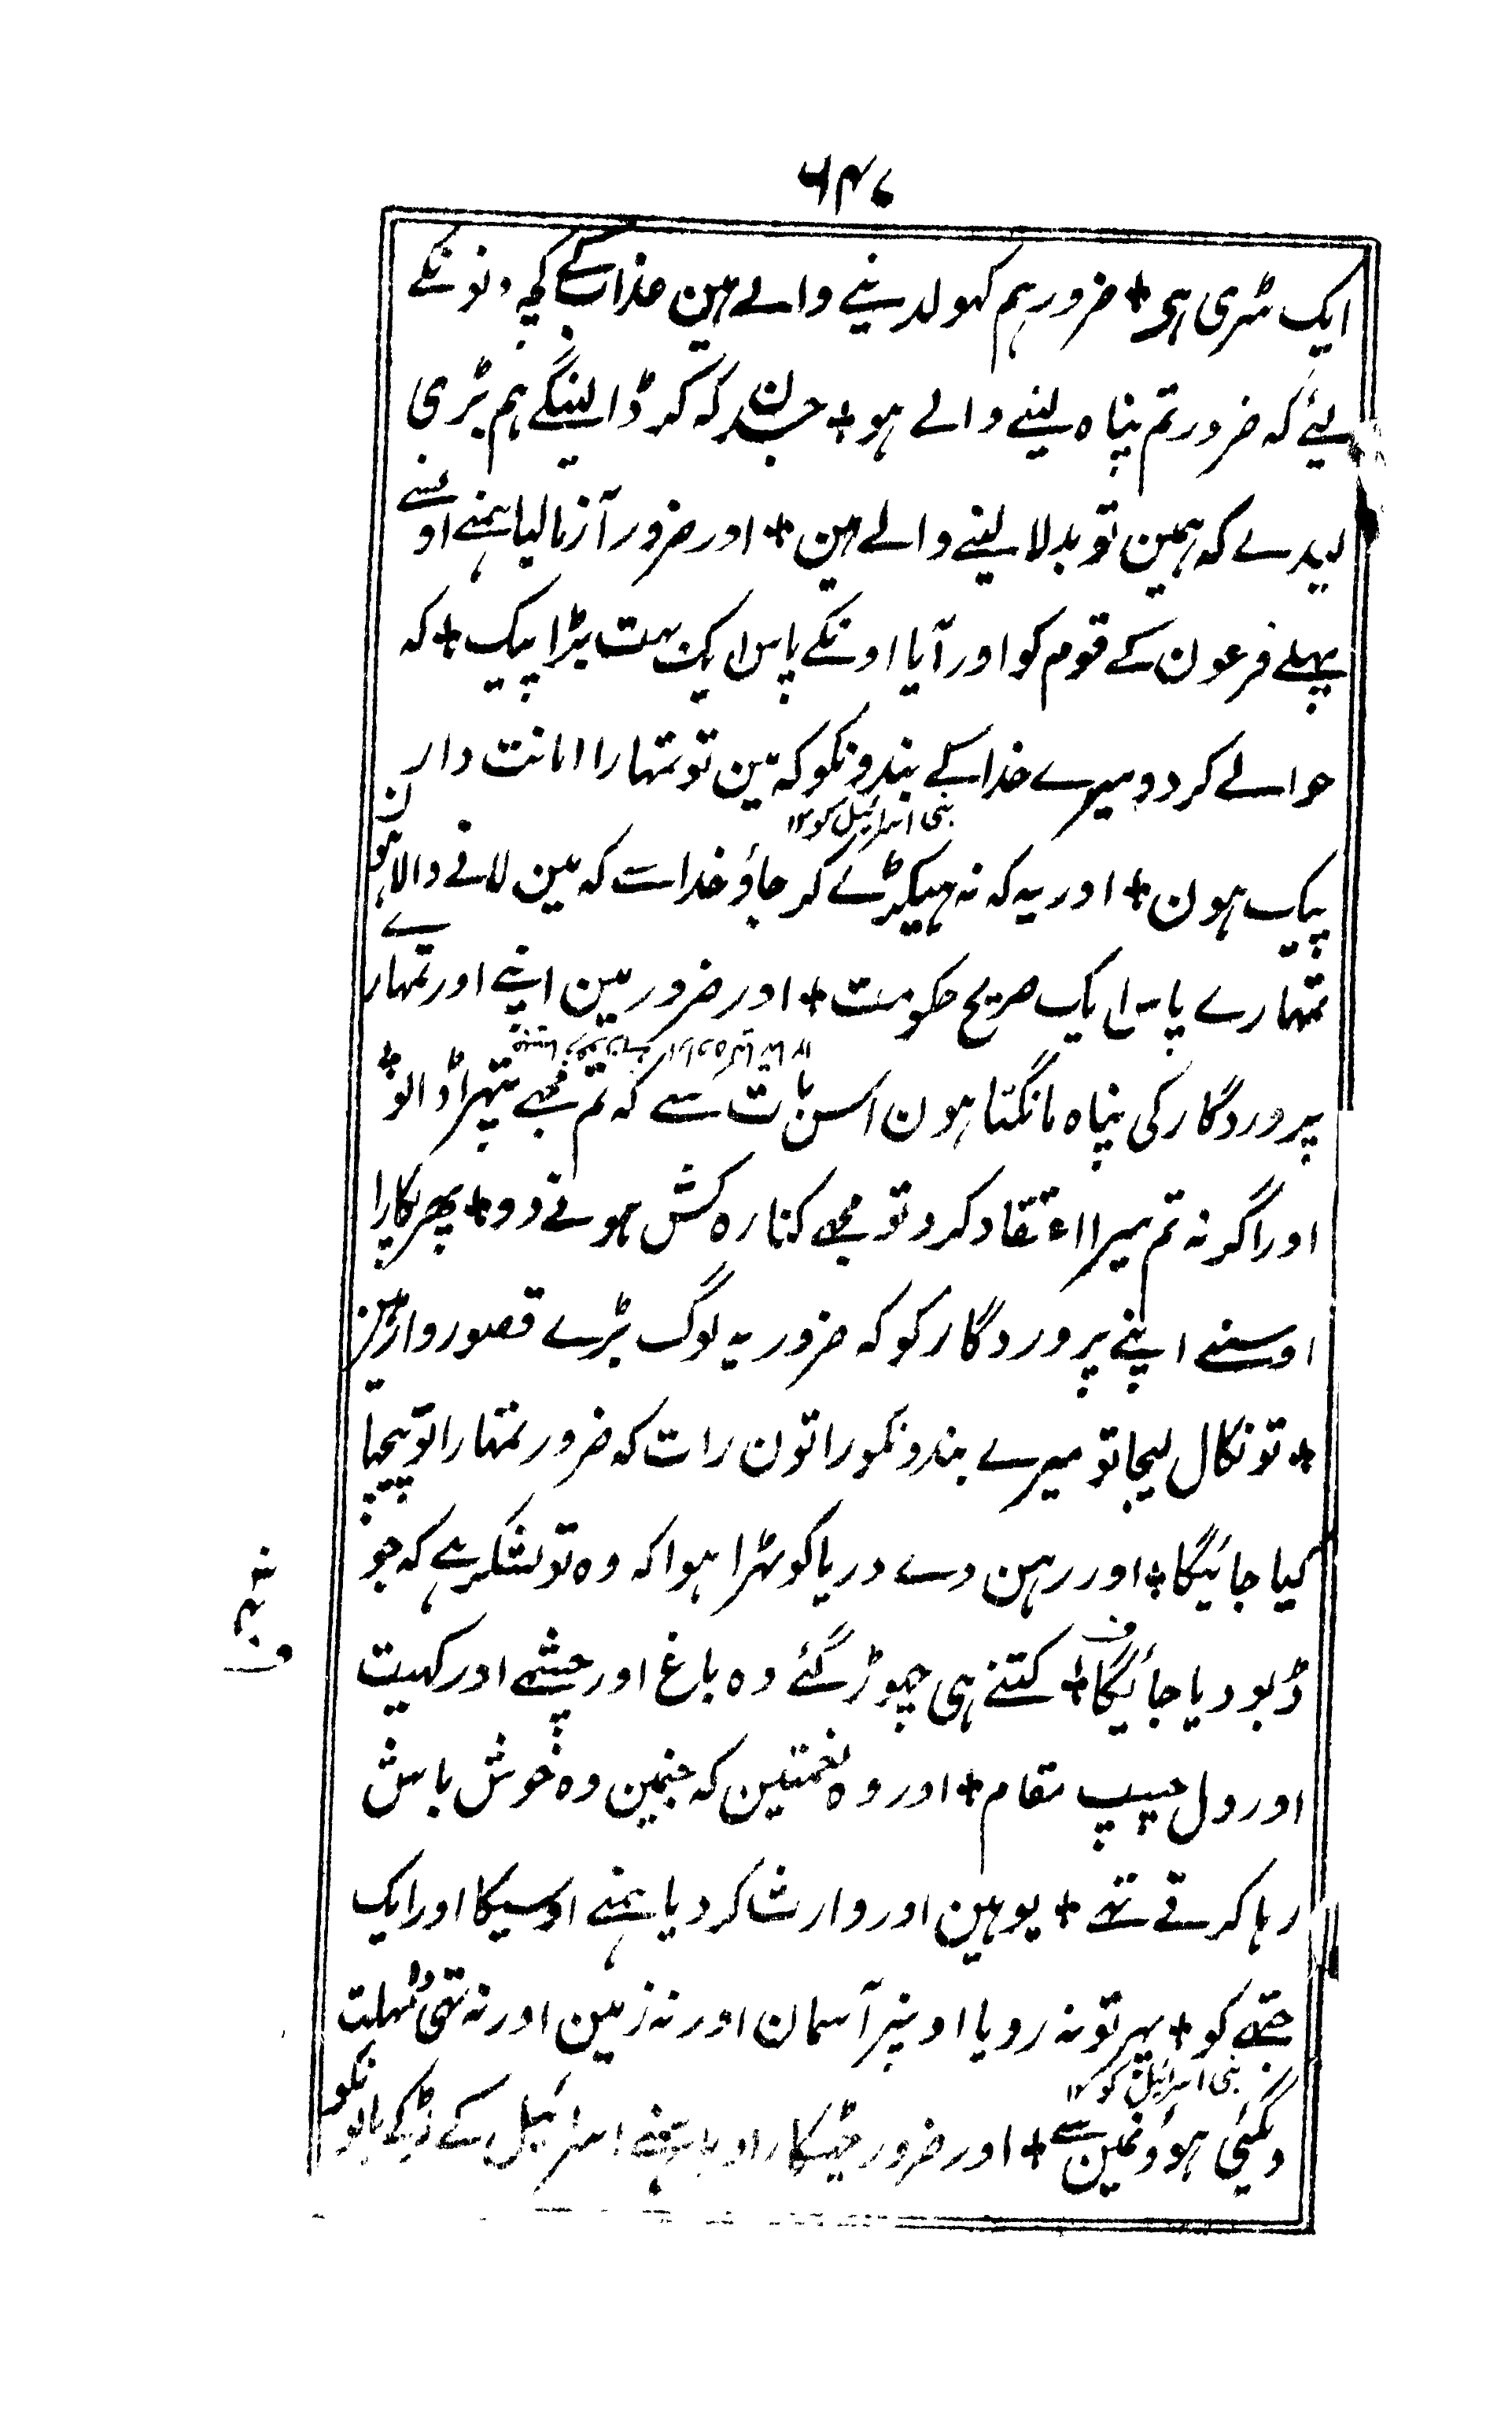 ۶۴۷
ایک سٹری ہی + ضرور ہم کہولدینے والے ہین عذاب کے کچہ دنونکے
لیئے کہ ضرور تم پناہ لینے والے ہو + جسدن کہ کر ڈالینگے ہم بڑی
لیدے کہ ہمین تو بدلا لینے والے ہین + اور ضرور آزما لیا ہمنے اونسے
پہلے فرعون کے قوم کو اور آیا اونکے پاس ایک بہت بڑا پیک + کہ
حوالے کر دو میرے خدا کے بندونکو کہ مین تو تمہارا امانت دار
بنی اسرائیل کو ۱۲
پیک ہون + اور یہ کہ نہ ہیکڑے کر جاؤ خدا سے کہ مین لانے والا ہون
تمہارے پاس ایک صریح حکومت + اور ضرور مین اپنے اور تمہارے
پروردگار کی پناہ مانگتا ہون اس بات سے کہ تم مجہے پتہرا ڈالو +
اور اگر نہ تم میرا اعتقاد کرو تو مجہے کنارہ کش ہونے دو + پھر پکارا
اوسنے اپنے پروردگار کو کہ ضرور یہ لوگ بڑے قصور وار ہین
+ تو نکال لیجا تو میرے بندونکو راتون رات کہ ضرور تمہارا تو پیچہا
کیا جائیگا + اور رہن دے دریا کو ٹہرا ہوا کہ وہ تو لشکر ہے کہ جو
ڈبو دیا جائیگا + ف کتنے ہی چھوڑ گئے وہ باغ اور چشمے اور کہیت
اور دل چسپ مقام + اور وہ نعمتین کہ جنمین وہ خوش باش
رہا کرتے تہے + یوہین اور وارث کر دیا ہمنے اوسیکا اور ایک
جتہے کو + پہر تو نہ رویا اونپر آسمان اور نہ زمین اور نہ تہی وہ مہلت
بنی اسرائیل کو ۱۲
دیگئی ہوؤنمین سے + اور ضرور چٹکارا دیا ہمنے اسرائیل کے لڑکے بالونکو